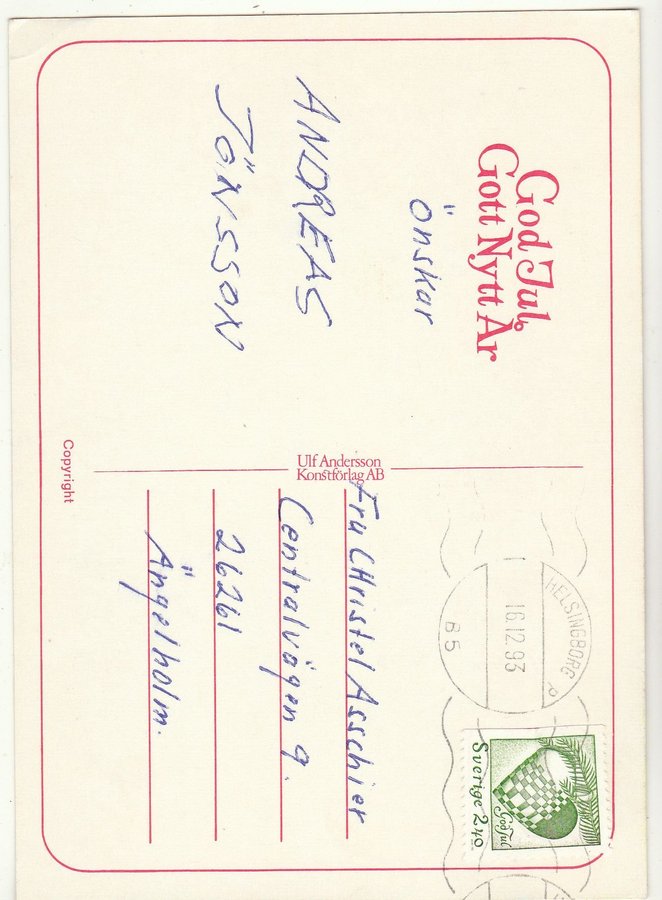 God Jul,
Gott Nytt År
önskar
ANDREAS
JÖNSSON
Ulf Andersson
Konstförlag AB
Copyright
HELSINGBORG
16.12.93
P
B5
God Jul
Sverige 2.40
Fru CHristel Asschier
Centralvägen 9.
26261
Ängelholm.